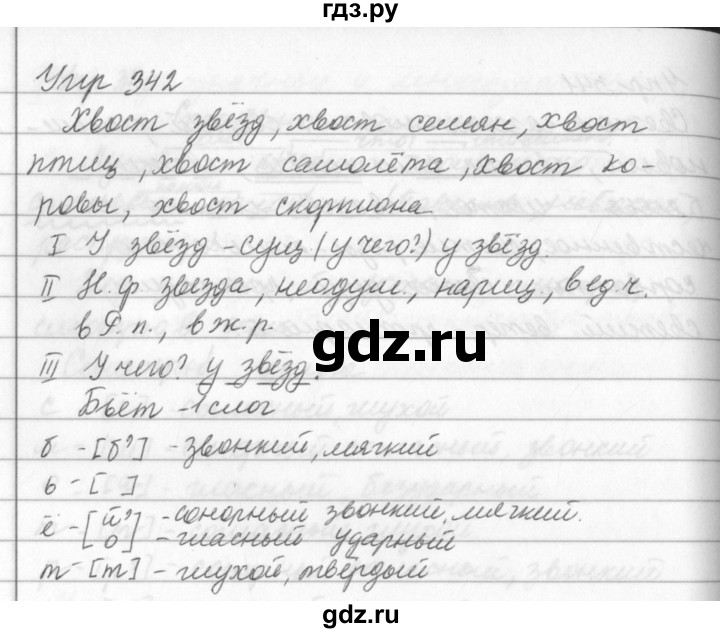 гдз.ру
Упр 342
Хвост звёзд, хвост семян, хвост
птиц, хвост самолёта, хвост ко-
ровы, хвост скорпиона
I У звёзд - сущ (у чего?) у звёзд.
II Н.ф звезда, неодуш., нариц., в ед.ч.
в Р.п., в ж.р.
gdz.ru
III У чего? у звёзд.
Бьёт - 1 слог
б - [б'] - звонкий, мягкий
ь - [ ]
ё - [й' - сонорный звонкий, мягкий.
о] - гласный ударный
т - [т] - глухой, твёрдый
gdz.ru